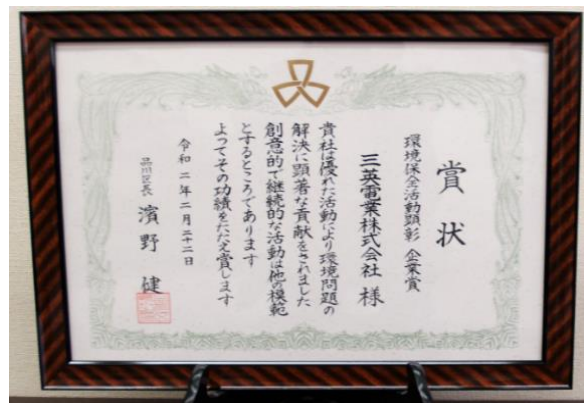 賞状
環境保全活動顕彰 企業賞
三英電業株式会社 様
貴社は優れた活動により環境問題の
解決に顕著な貢献をされました
創意的で継続的な活動は他の模範
とするところであります
よってその功績をたたえ賞します
令和二年二月二十二日
品川区長 濱野 健